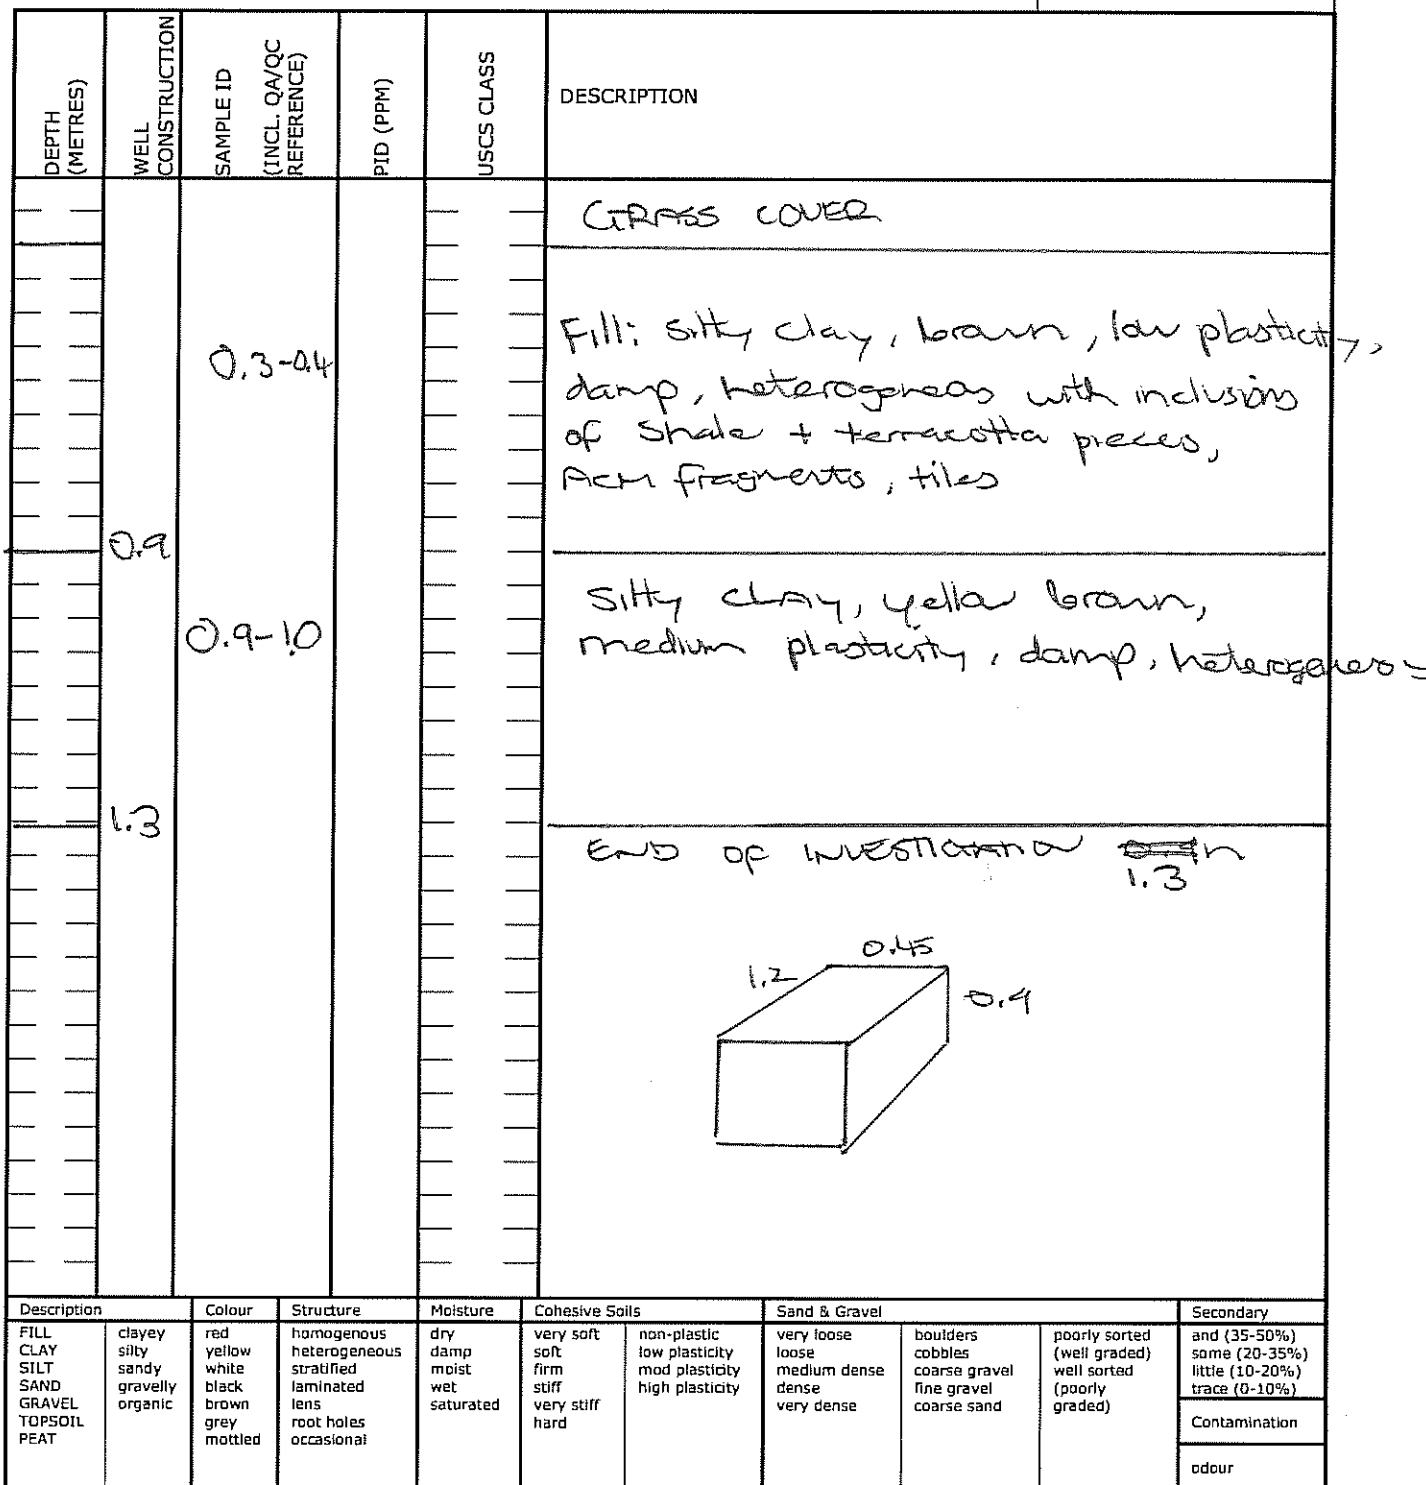 DEPTH
(METRES)
WELL
CONSTRUCTION
SAMPLE ID
(INCL. QA/QC
REFERENCE)
PID (PPM)
USCS CLASS
DESCRIPTION
GRASS COVER
0.3-0.4
Fill: Silty clay, brown, low plasticity,
damp, heterogeneos with inclusions
of Shale + terracotta pieces,
ACM fragments, tiles
0.9
0.9-1.0
Silty CLAY, yellow brown,
medium plasticity, damp, heterogeneos
1.3
END OF INVESTIGATION m
1.3
0.45
1.2
0.9
Description
Colour
Structure
Moisture
Cohesive Soils
Sand & Gravel
Secondary
FILL
CLAY
SILT
SAND
GRAVEL
TOPSOIL
PEAT
clayey
silty
sandy
gravelly
organic
red
yellow
white
black
brown
grey
mottled
homogenous
heterogeneous
stratified
laminated
lens
root holes
occasional
dry
damp
moist
wet
saturated
very soft
soft
firm
stiff
very stiff
hard
non-plastic
low plasticity
mod plasticity
high plasticity
very loose
loose
medium dense
dense
very dense
boulders
cobbles
coarse gravel
fine gravel
coarse sand
poorly sorted
(well graded)
well sorted
(poorly
graded)
and (35-50%)
some (20-35%)
little (10-20%)
trace (0-10%)
Contamination
odour